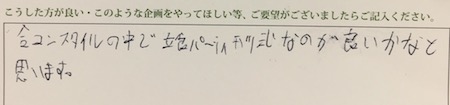 こうした方が良い・このような企画をやってほしい等、ご要望がございましたらご記入ください。
合コンスタイルの中で立食パーティ形式なのが良いかなと
思います。